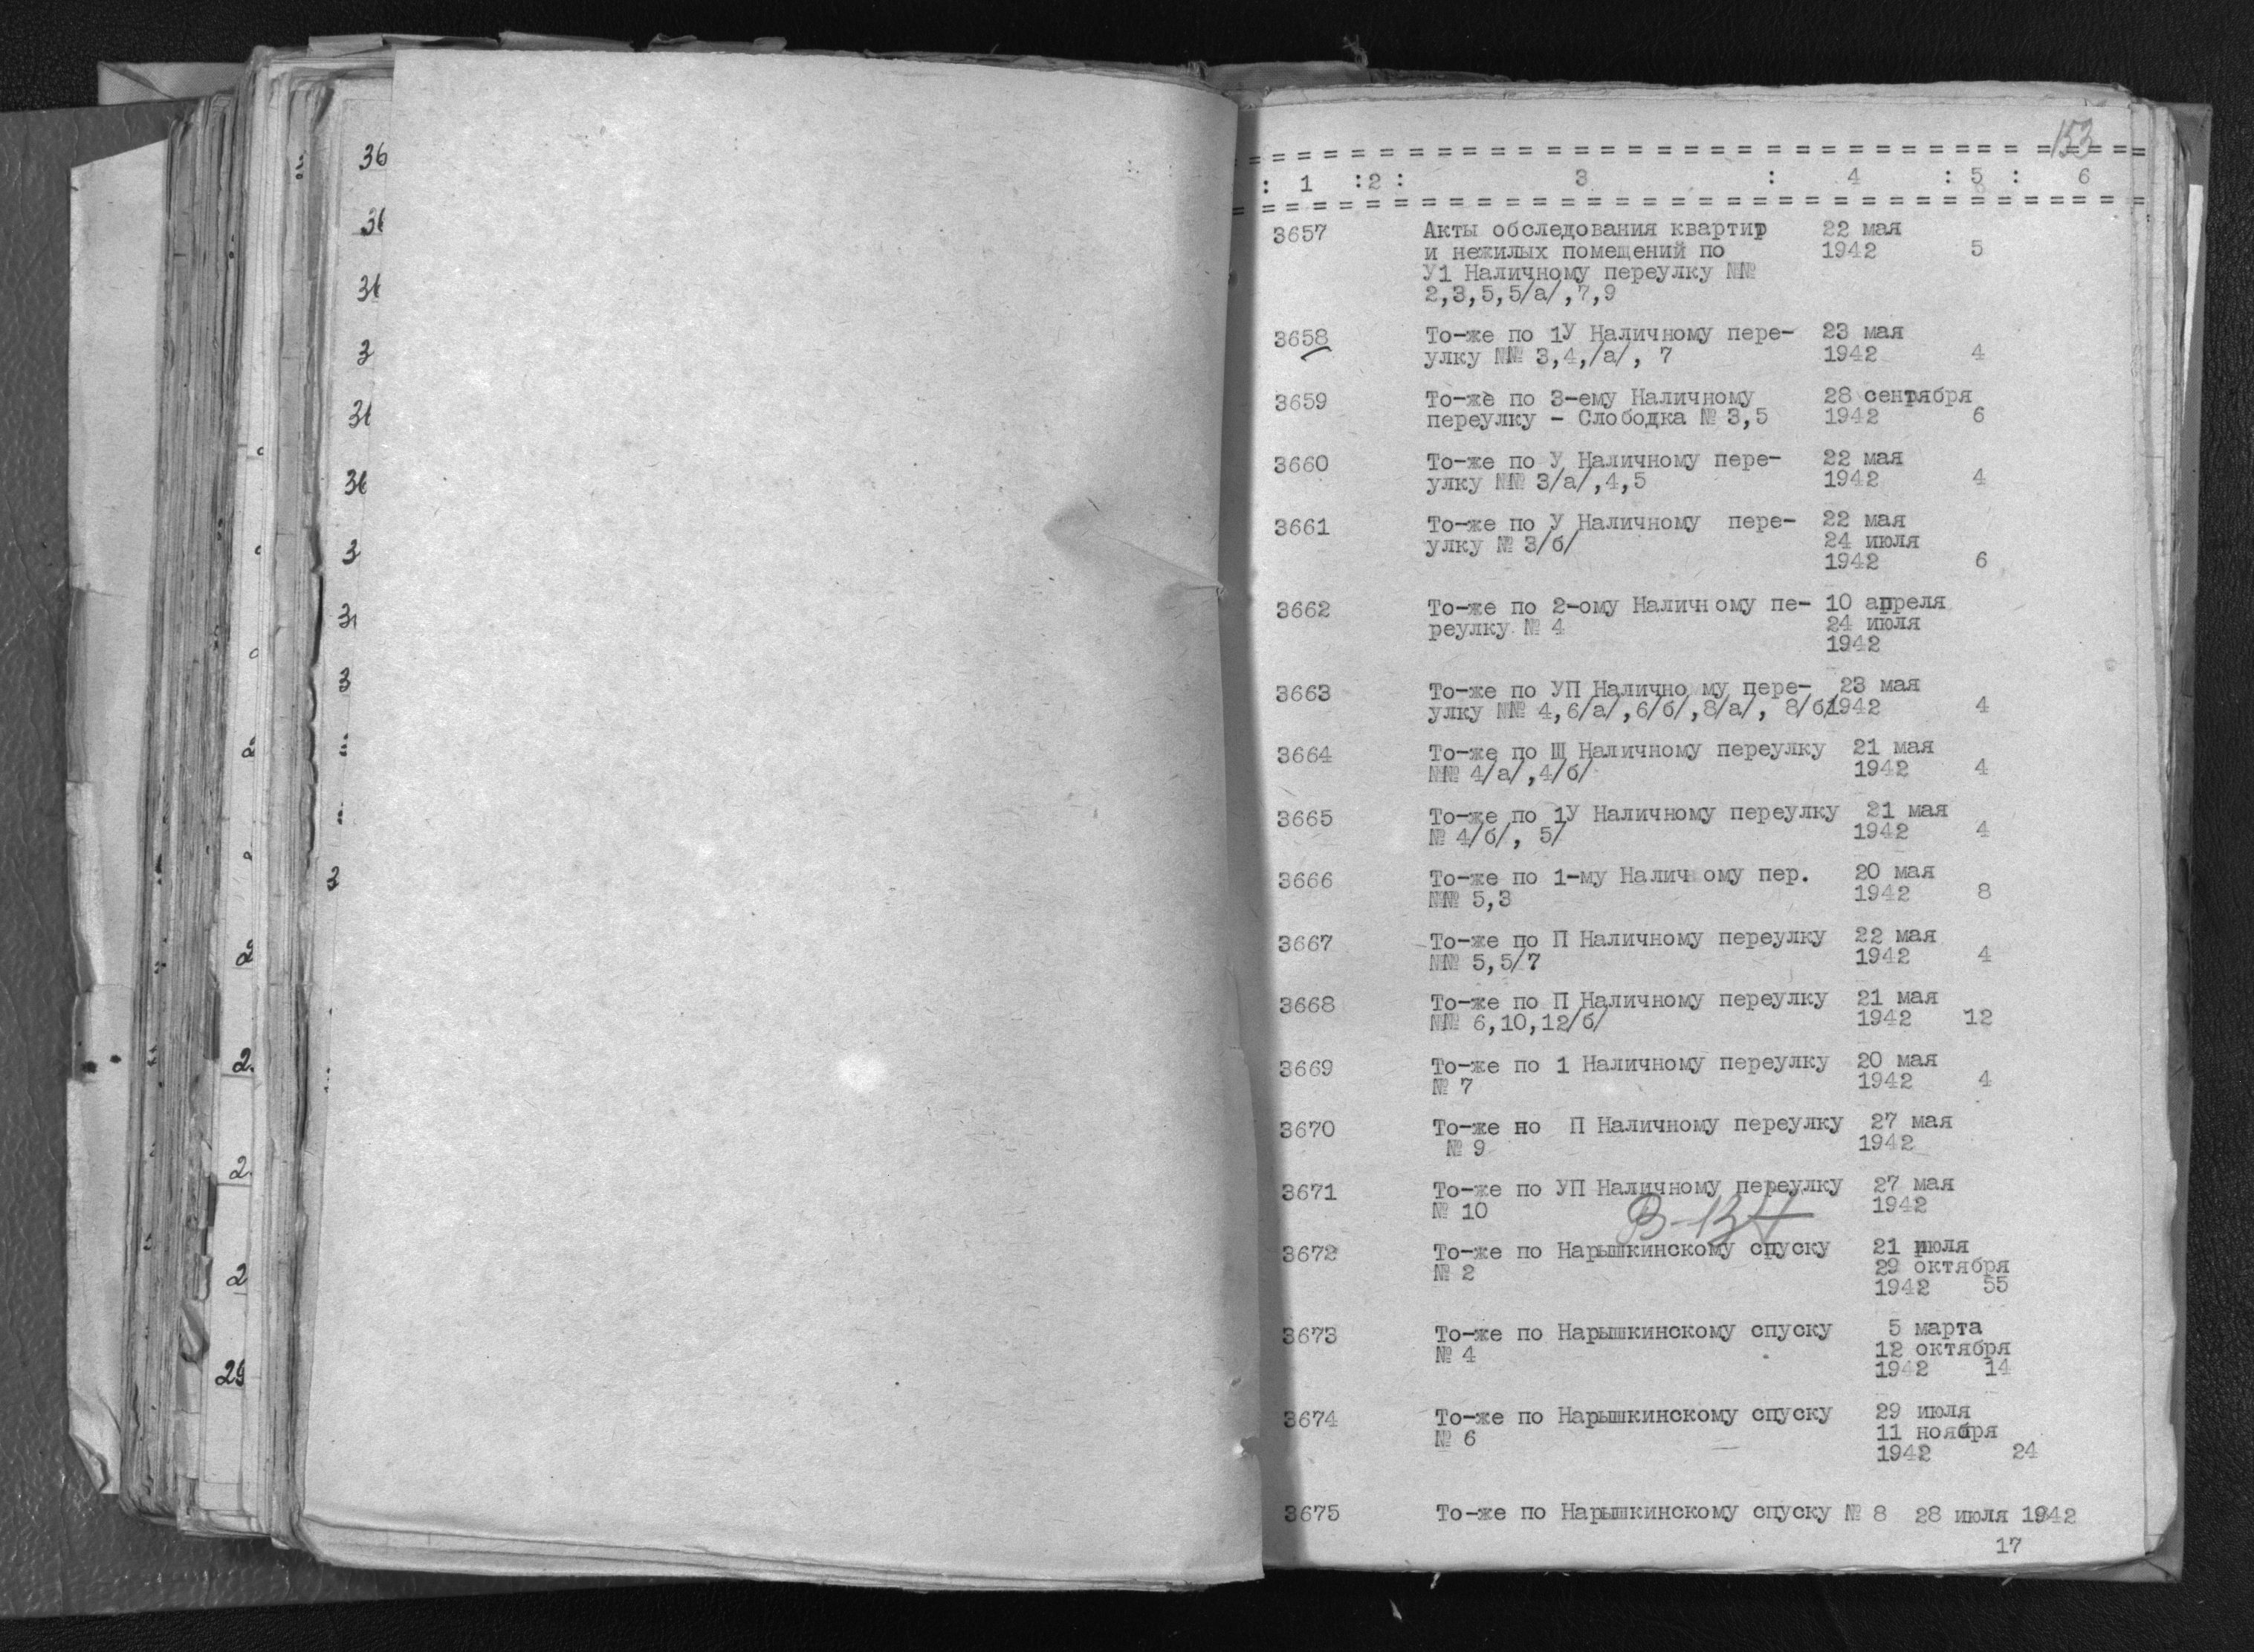 153
: 1 :2: 3 : 4 : 5 : 6
3657 Акты обследования квартир 22 мая
и нежилых помещений по 1942 5
У1 Наличному переулку №№
2,3,5,5/а/,7,9
3658 То-же по 1У Наличному пере- 23 мая
улку №№ 3,4,/а/, 7 1942 4
3659 То-же по 3-ему Наличному 28 сентября
переулку - Слободка № 3,5 1942 6
3660 То-же по У Наличному пере- 22 мая
улку №№ 3/а/,4,5 1942 4
3661 То-же по У Наличному пере- 22 мая
улку № 3/б/ 24 июля
1942 6
3662 То-же по 2-ому Наличному пе- 10 апреля
реулку № 4 24 июля
1942
3663 То-же по УП Наличному пере- 23 мая
улку №№ 4,6/а/,6/б/,8/а/, 8/б/1942 4
3664 То-же по Ш Наличному переулку 21 мая
№№ 4/а/,4/б/ 1942 4
3665 То-же по 1У Наличному переулку 21 мая
№ 4/б/, 5/ 1942 4
3666 То-же по 1-му Наличному пер. 20 мая
№№ 5,3 1942 8
3667 То-же по П Наличному переулку 22 мая
№№ 5,5/7 1942 4
3668 То-же по П Наличному переулку 21 мая
№№ 6,10,12/б/ 1942 12
3669 То-же по 1 Наличному переулку 20 мая
№ 7 1942 4
3670 То-же но П Наличному переулку 27 мая
№ 9 1942
3671 То-же по УП Наличному переулку 27 мая
№ 10 1942
3672 То-же по Нарышкинскому спуску 21 июля
№ 2 29 октября
1942 55
3673 То-же по Нарышкинскому спуску 5 марта
№ 4 12 октября
1942 14
3674 То-же по Нарышкинскому спуску 29 июля
№ 6 11 ноября
1942 24
3675 То-же по Нарышкинскому спуску № 8 28 июля 1942
17